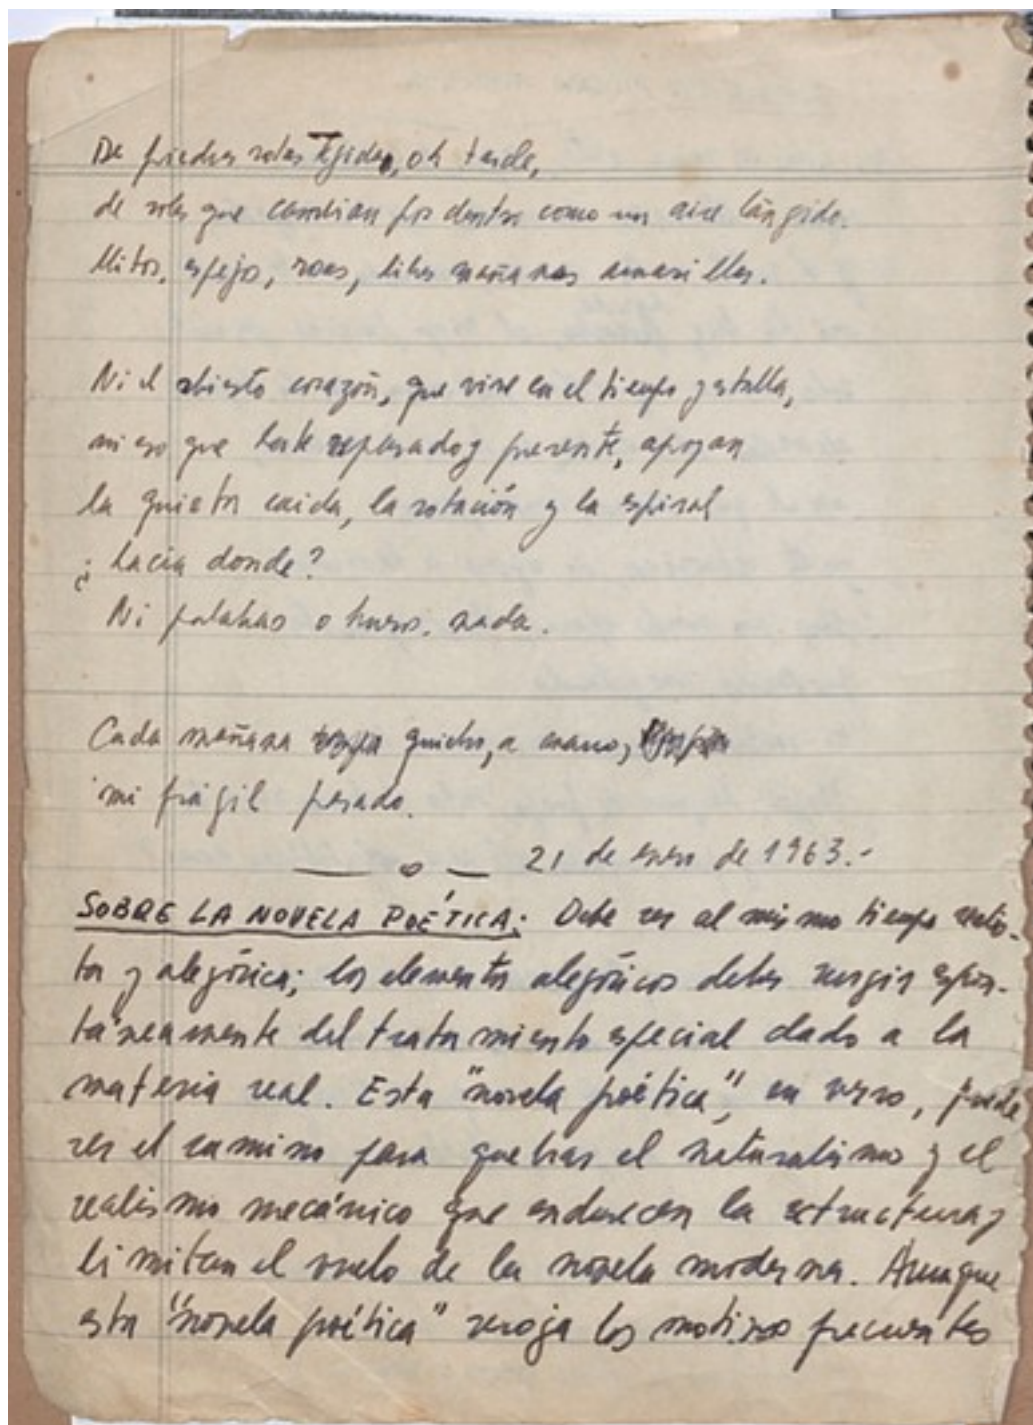 De piedras rotas tejidas, oh tarde,
de soles que cambian por dentro como un aire lánguido.
Mitos, espejo, rosas, libres mañanas amarillas.
Ni el abierto corazón, que vive en el tiempo y estalla,
ni eso que late reposado y presente, apoyan
la quieta caida, la rotación y la espiral
¿hacia donde?
Ni palabras o humo. nada.
Cada mañana quiebro, a mano,
mi frágil pasado.
— o — 21 de enero de 1963.-
SOBRE LA NOVELA POÉTICA: Debe ser al mismo tiempo realis-
ta y alegórica; los elementos alegóricos deben surgir espon-
táneamente del tratamiento especial dado a la
materia real. Esta "novela poética", en verso, puede
ser el camino para quebrar el naturalismo y el
realismo mecánico que endurecen la estructura y
limitan el vuelo de la novela moderna. Aunque
esta "novela poética" recoja los motivos frecuentes